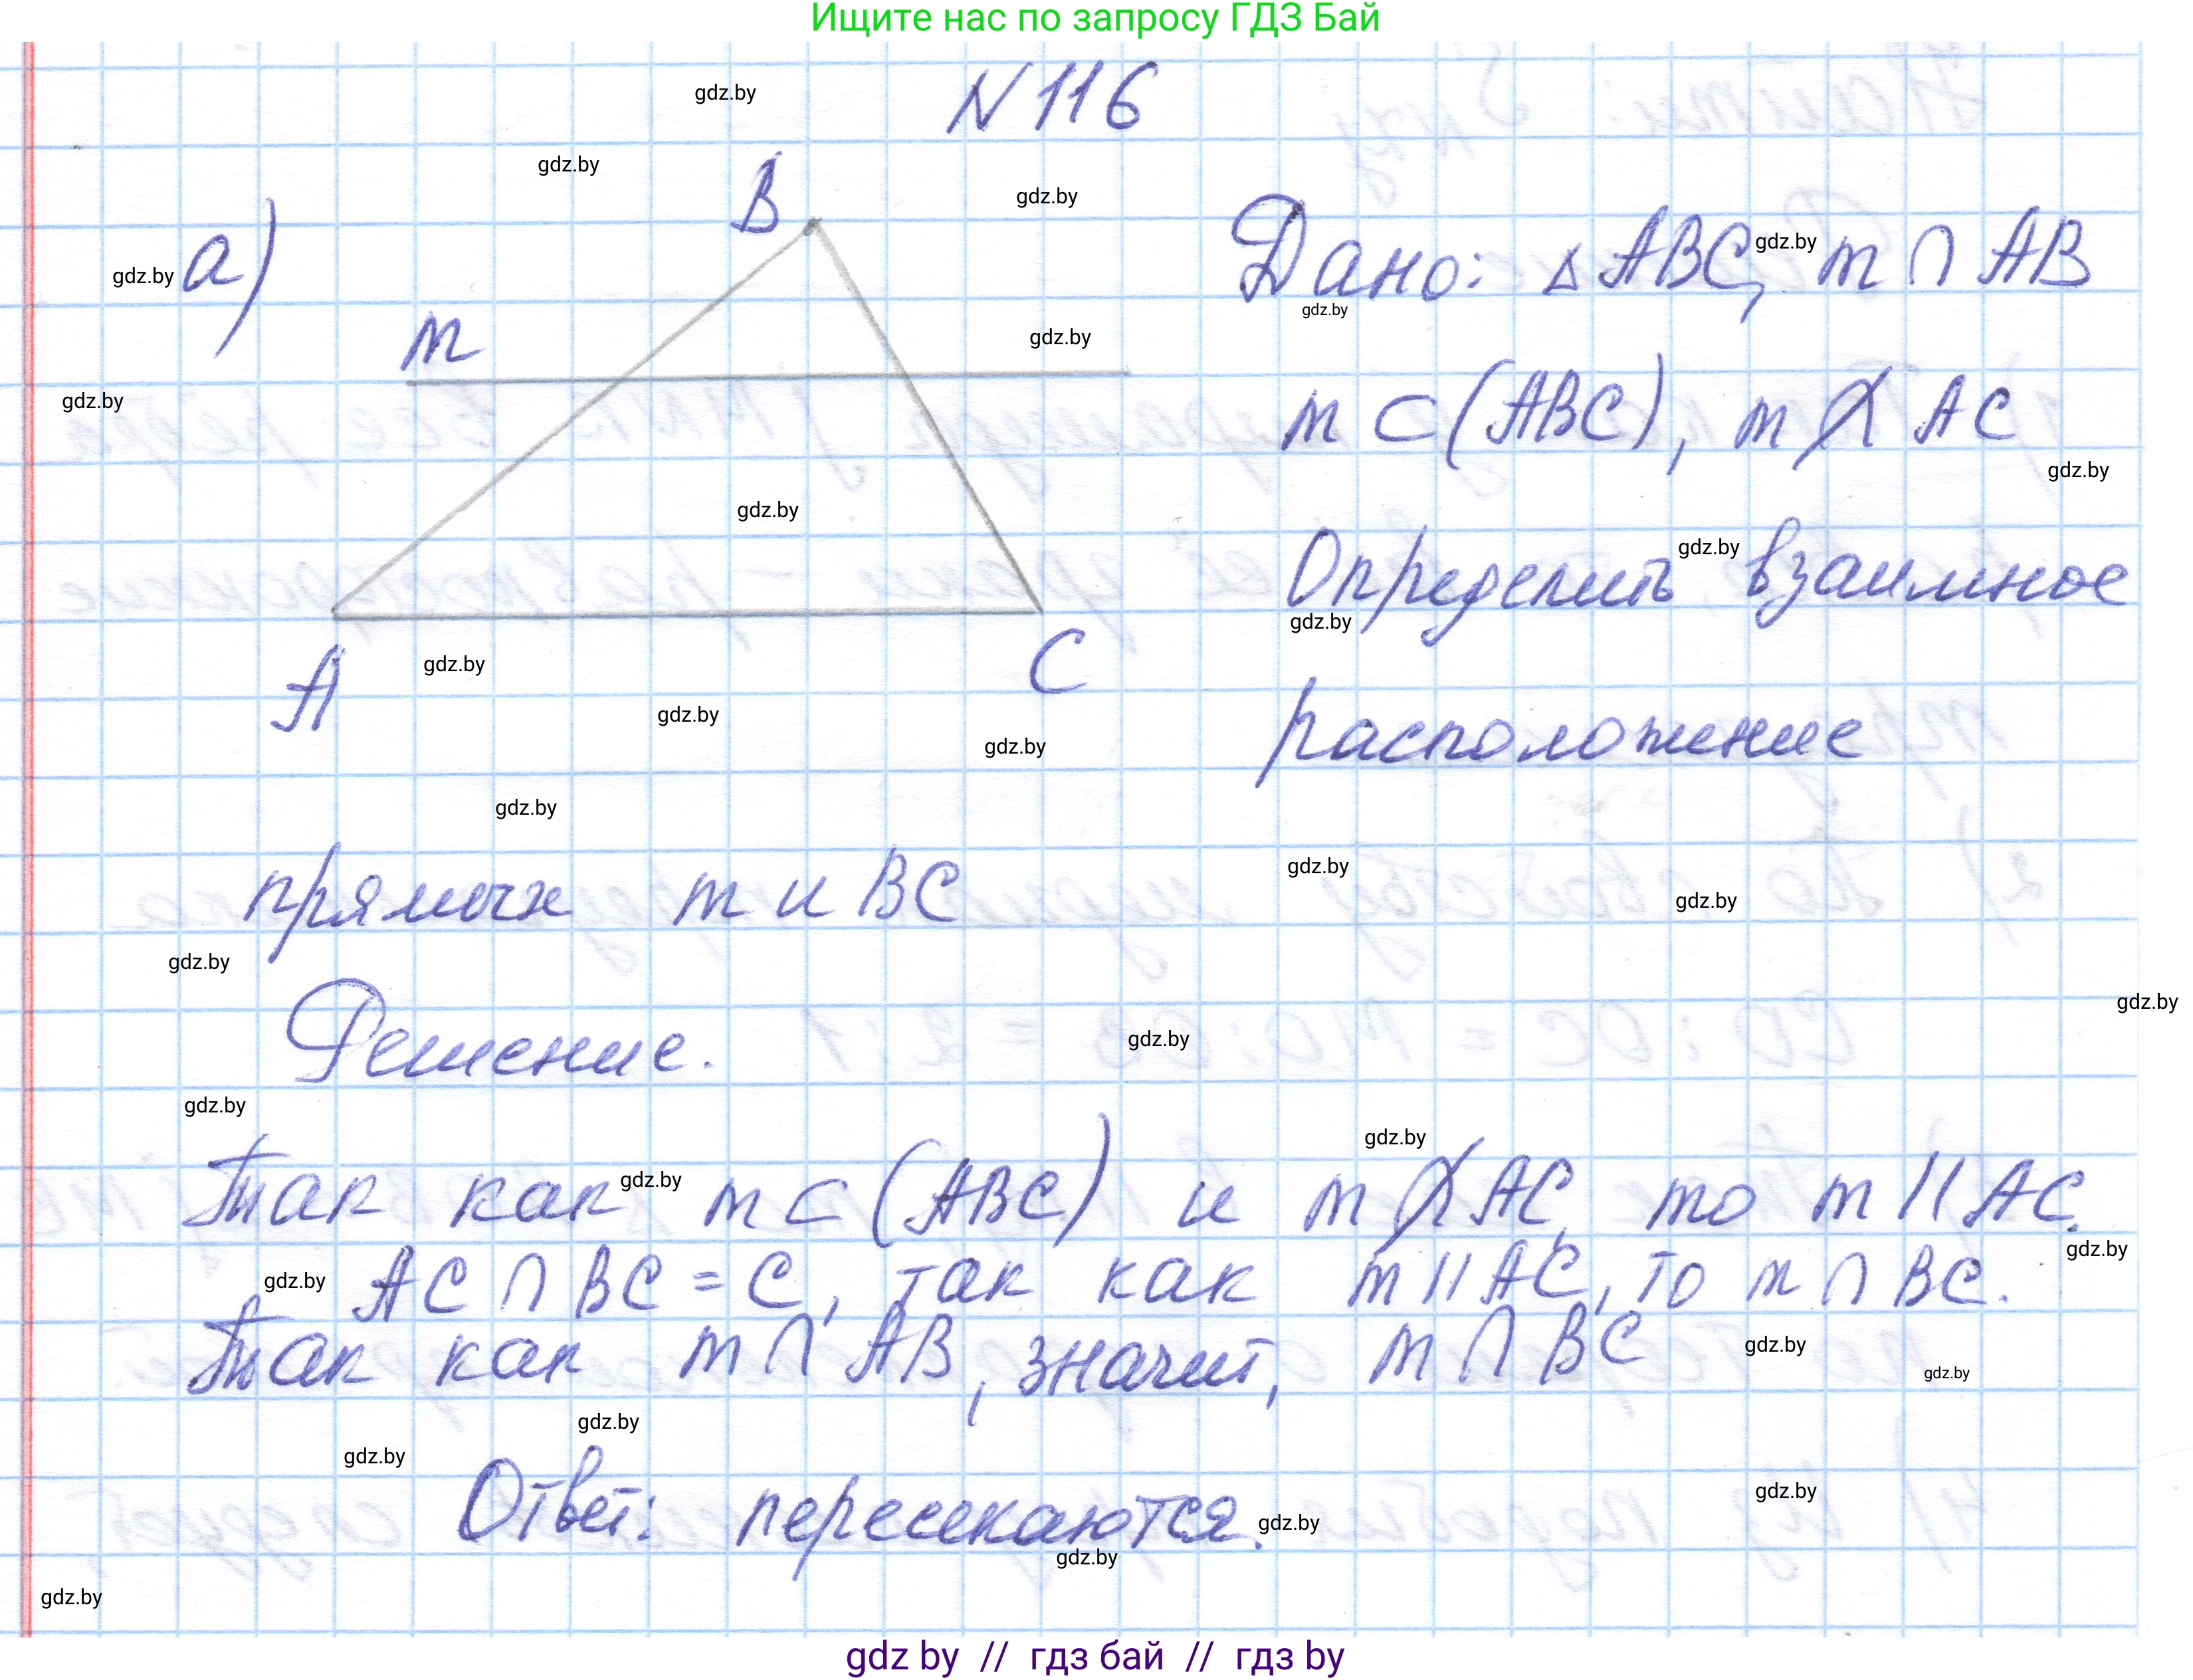 Ищите нас по запросу ГДЗ Бай
N 116
gdz.by
gdz.by
B
gdz.by
a)
gdz.by
Дано: △ ABC, m ∩ AB
gdz.by
gdz.by
m
gdz.by
gdz.by
m ⊂ (ABC), m ∩̸ AC
gdz.by
gdz.by
Определить взаимное
gdz.by
gdz.by
A
C
gdz.by
gdz.by
gdz.by
расположение
gdz.by
прямых m и BC
gdz.by
gdz.by
gdz.by
Решение.
gdz.by
gdz.by
gdz.by
Так как m ⊂ (ABC) и m ∩̸ AC, то m || AC.
gdz.by
gdz.by
AC ∩ BC = C, так как m || AC, то m ∩ BC.
gdz.by
gdz.by
Так как m ∩ AB, значит, m ∩ BC
gdz.by
gdz.by
gdz.by
gdz.by
Ответ: пересекаются.
gdz.by
gdz.by
gdz.by
gdz.by
gdz by // гдз бай // гдз by